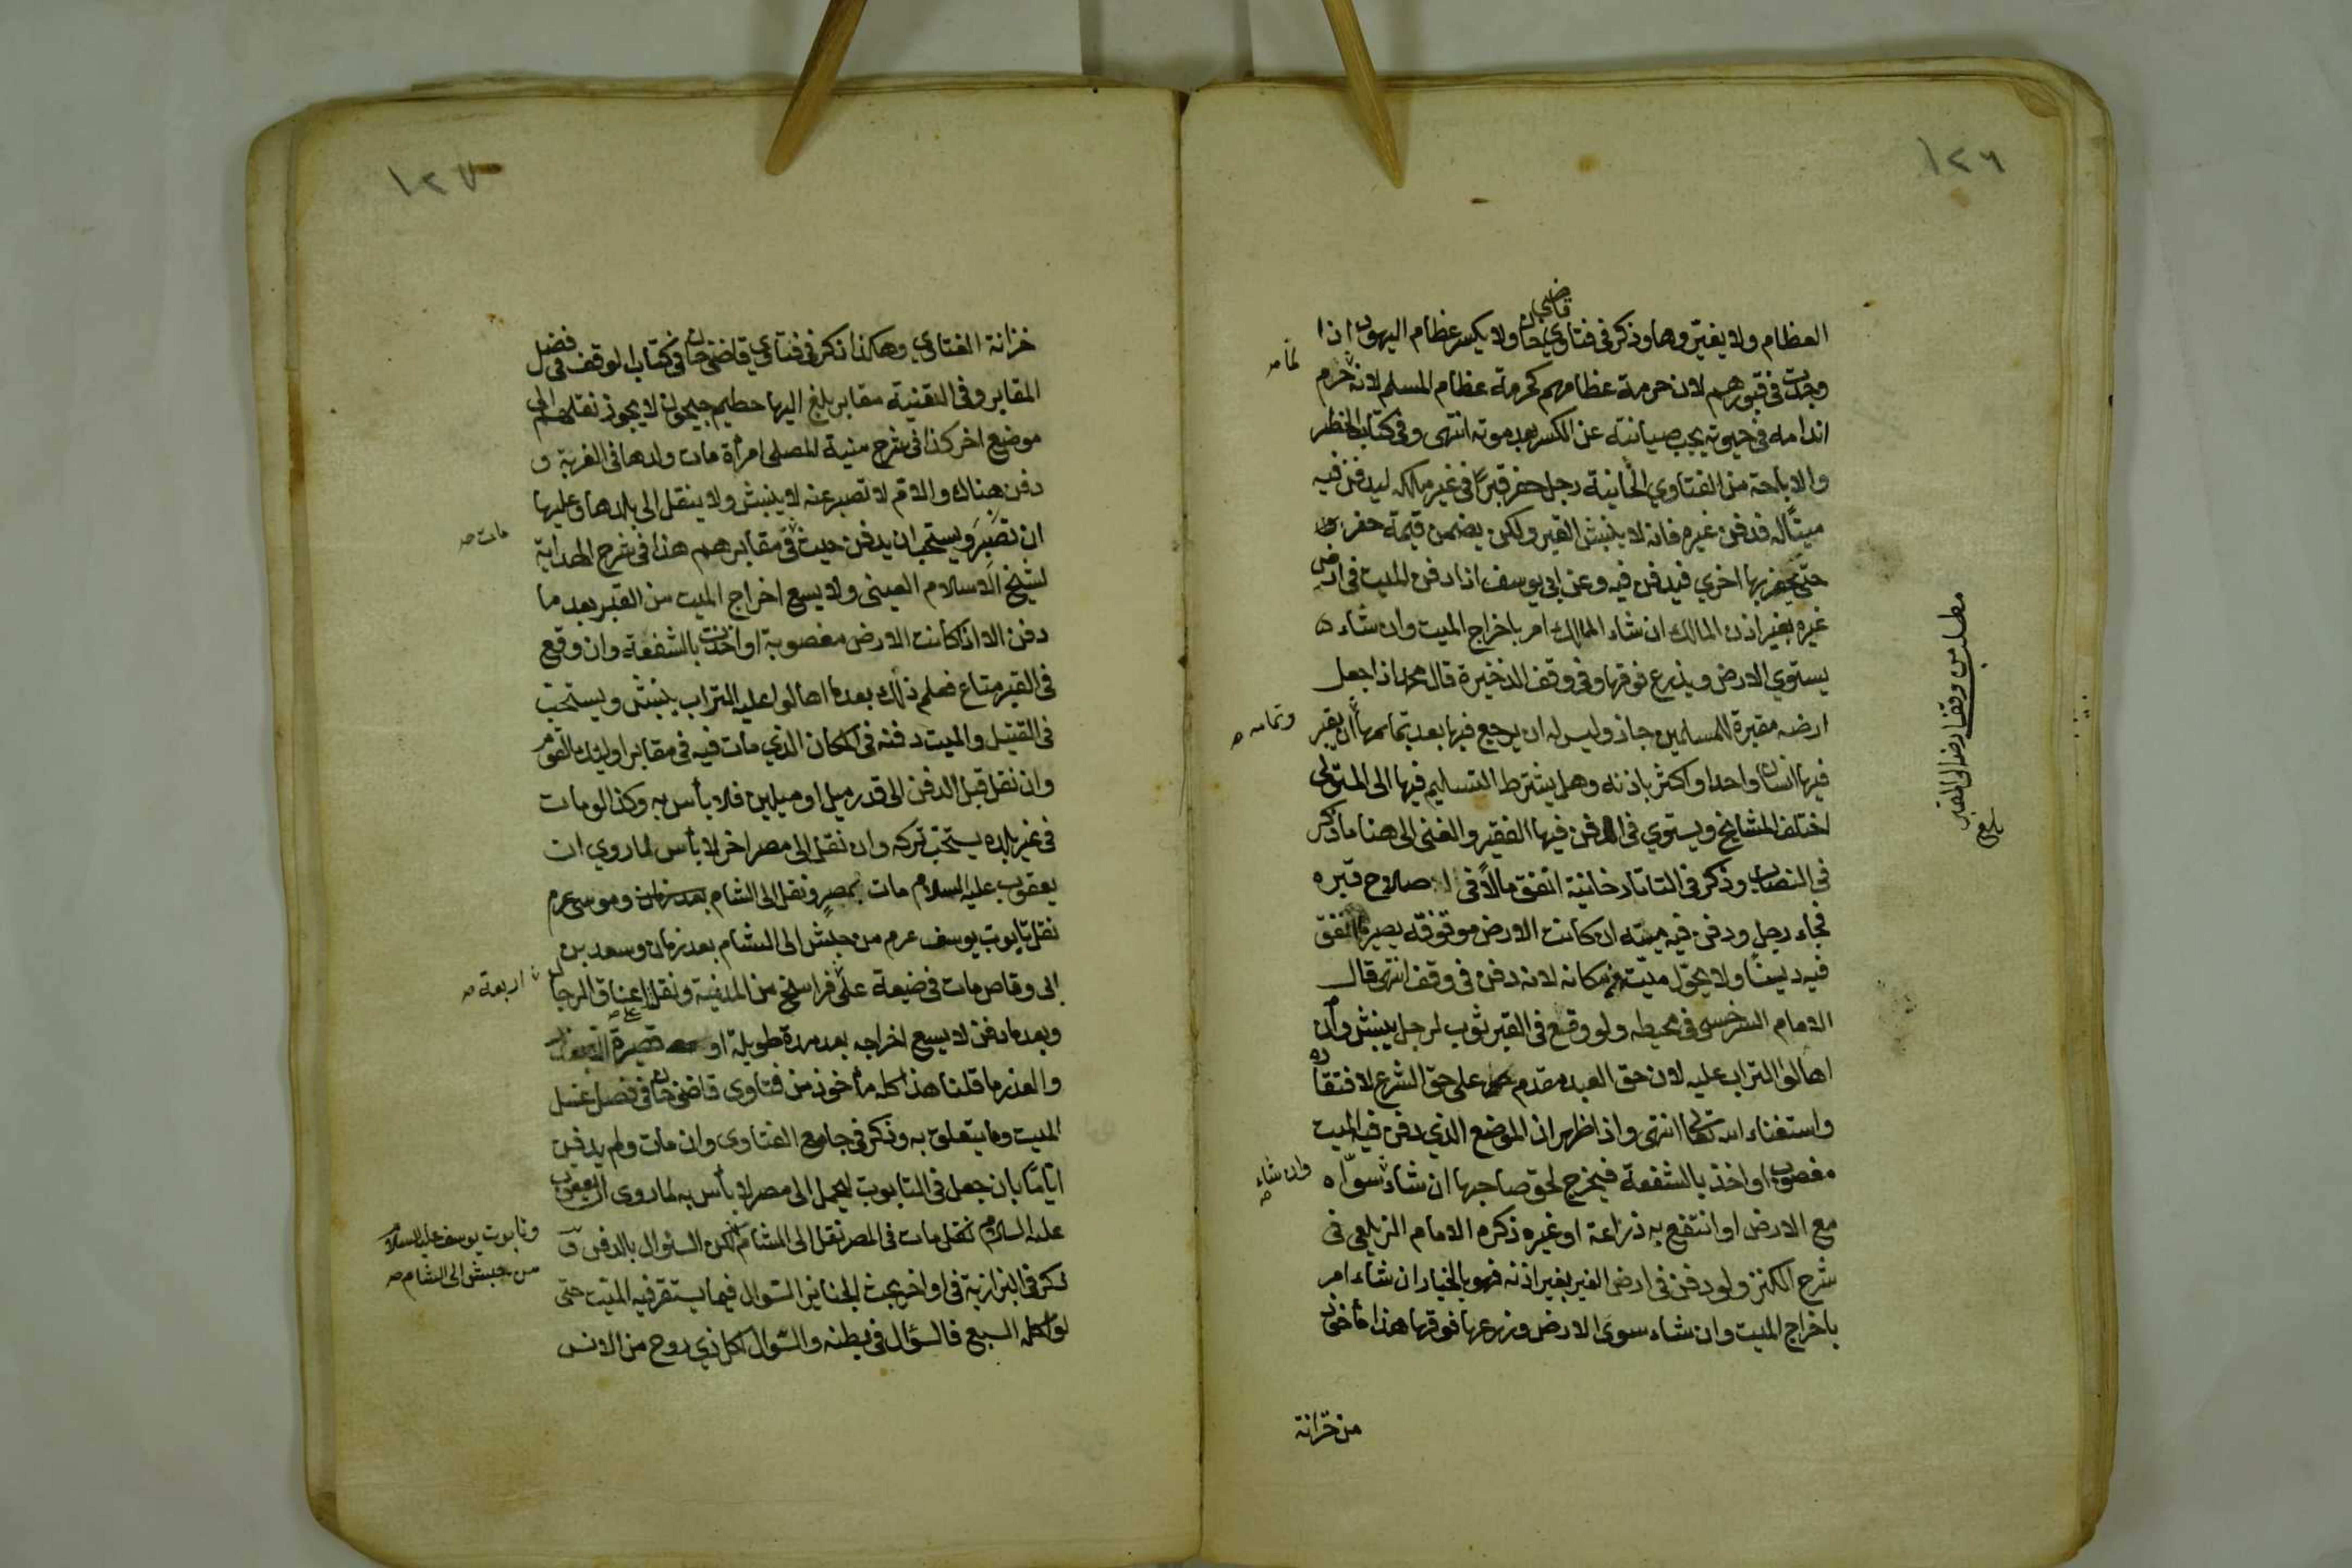 ١٢٦
العظام ولا يغيروها وذكر في فتاوي قاضيخان ولا يكسر عظام اليهود اذا
وجدت في قبورهم لان حرمة عظامهم كحرمة عظام المسلم لانه حرم
في حيوته يجب صيانته عن الكسر بعد موته انتهى وفي كتاب الحظر
والاباحة من الفتاوي الخانية رجل حفر قبرًا في غير ملكه ليدفن فيه
ميتًا له فدفن غيره فانه لا ينبش القبر ولكن يضمن قيمة حفره
حتى يحفر بها اخري فيدفن فيه وعن ابي يوسف اذا دفن الميت في ارض
غيره بغير اذن المالك ان شاء المالك امر باخراج الميت وان شاء
يستوي الارض ويزرع فوقها وفي وقف الذخيرة قال محمد اذا جعل
ارضه مقبرة للمسلمين جاز وليس له ان يرجع فيها بعد تمامها ان يقبر
فيها انسان واحد او اكثر باذنه وهل يشترط التسليم فيها الى المتولى
اختلف المشايخ ويستوي في الدفن فيها الفقير والغنى الى هنا ما ذكر
في النصاب وذكر في التاتارخانية انفق مالًا في اصلاح قبره
فجاء رجل ودفن فيه ميته ان كانت الارض موقوفة يصير ما انفق
فيه دينًا ولا يحوّل ميّت عن مكانه لانه دفن في وقف انتهى قال
الامام السرخسى في محيطه ولو وقع في القبر ثوب لرجل ينبش وان
اهالوا التراب عليه لان حق العبد مقدم على حق الشرع لافتقاره
واستغناء الله تعالى انتهى واذا ظهر ان الموضع الذي دفن فيه الميت
مغصوب او اخذ بالشفعة فيخرج لحق صاحبها ان شاء سوّاه
مع الارض او انتفع به زراعة او غيره ذكره الامام الزيلعى في
شرح الكنز ولو دفن في ارض الغير بغير اذنه فهو بالخيار ان شاء امر
باخراج الميت وان شاء سوى الارض وزرعها فوقها هذا مأخوذ
من خزانة
لما صه
وتمامه صه
وان شاء صه
مطلب من وقف ارضه الى المقبر
بلغ
١٢٧
خزانة الفتاوي وهكذا ذكر في فتاوي قاضيخان في كتاب الوقف في فصل
المقابر وفي القنية مقابر بلغ اليها حطيم جيحون لا يجوز نقلهم الى
موضع اخر كذا في شرح منية المصلى امرأة مات ولدها في الغربة و
دفن هناك والام لا تصبر عنه لا ينبش ولا ينقل الى بلدها وعليها
ان تصبر ويستحب ان يدفن حيث في مقابرهم هذا في شرح الهداية
لشيخ الاسلام العينى ولا يسع اخراج الميت من القبر بعد ما
دفن الا اذا كانت الارض مغصوبة او اخذت بالشفعة وان وقع
في القبر متاع فعلم ذلك بعد ما اهالوا عليه التراب ينبش ويستحب
في القتيل والميت دفنه في المكان الذي مات فيه في مقابر اولئك القوم
وان نقل قبل الدفن الى قدر ميل او ميلين فلا بأس به وكذا لو مات
في غير بلده يستحب تركه وان نقل الى مصر اخر لا بأس لما روي ان
يعقوب عليه السلام مات بمصر ونقل الى الشام بعد زمان وموسى ع م
نقل تابوت يوسف ع م من حبش الى الشام بعد زمان وسعد بن
ابى وقاص مات في ضيعة على فراسخ من المدينة ونقل اعناق الرجال
وبعد ما دفن لا يسع اخراجه بعد مدة طويلة او قصيرة
والعذر ما قلنا هذا كله مأخوذ من فتاوى قاضيخان في فصل غسل
الميت وما يتعلق به وذكر في جامع الفتاوى وان مات ولم يدفن
ايامًا بان جعل في التابوت ليحمل الى مصر لا بأس به لما روى ان يعقوب
عليه السلام مات في المصر نقل الى الشام لكن السئوال بالدفن
ذكر في البزازية في اواخر بحث الجنايز السّوال فيما يستقر فيه الميت حتى
لو اكله السبع فالسؤال في بطنه والسّوال لكل ذي روح من الانس
مات صه
اربعة صه
وتابوت يوسف عليه السلام
من حبش الى الشام صه